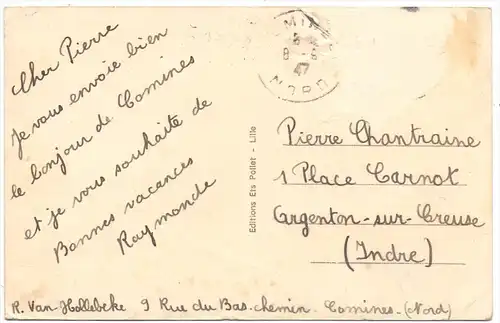 Cher Pierre
Je vous envoie bien
le bonjour de Comines
et je vous souhaite de
Bonnes vacances
Raymonde
8 - 8
47
NORD
Editions Ets Pollet - Lille
Pierre Chantraine
1 Place Carnot
Argenton-sur-Creuse
(Indre)
R. Van-Hollebeke 9 Rue du Bas-chemin. Comines-(Nord)